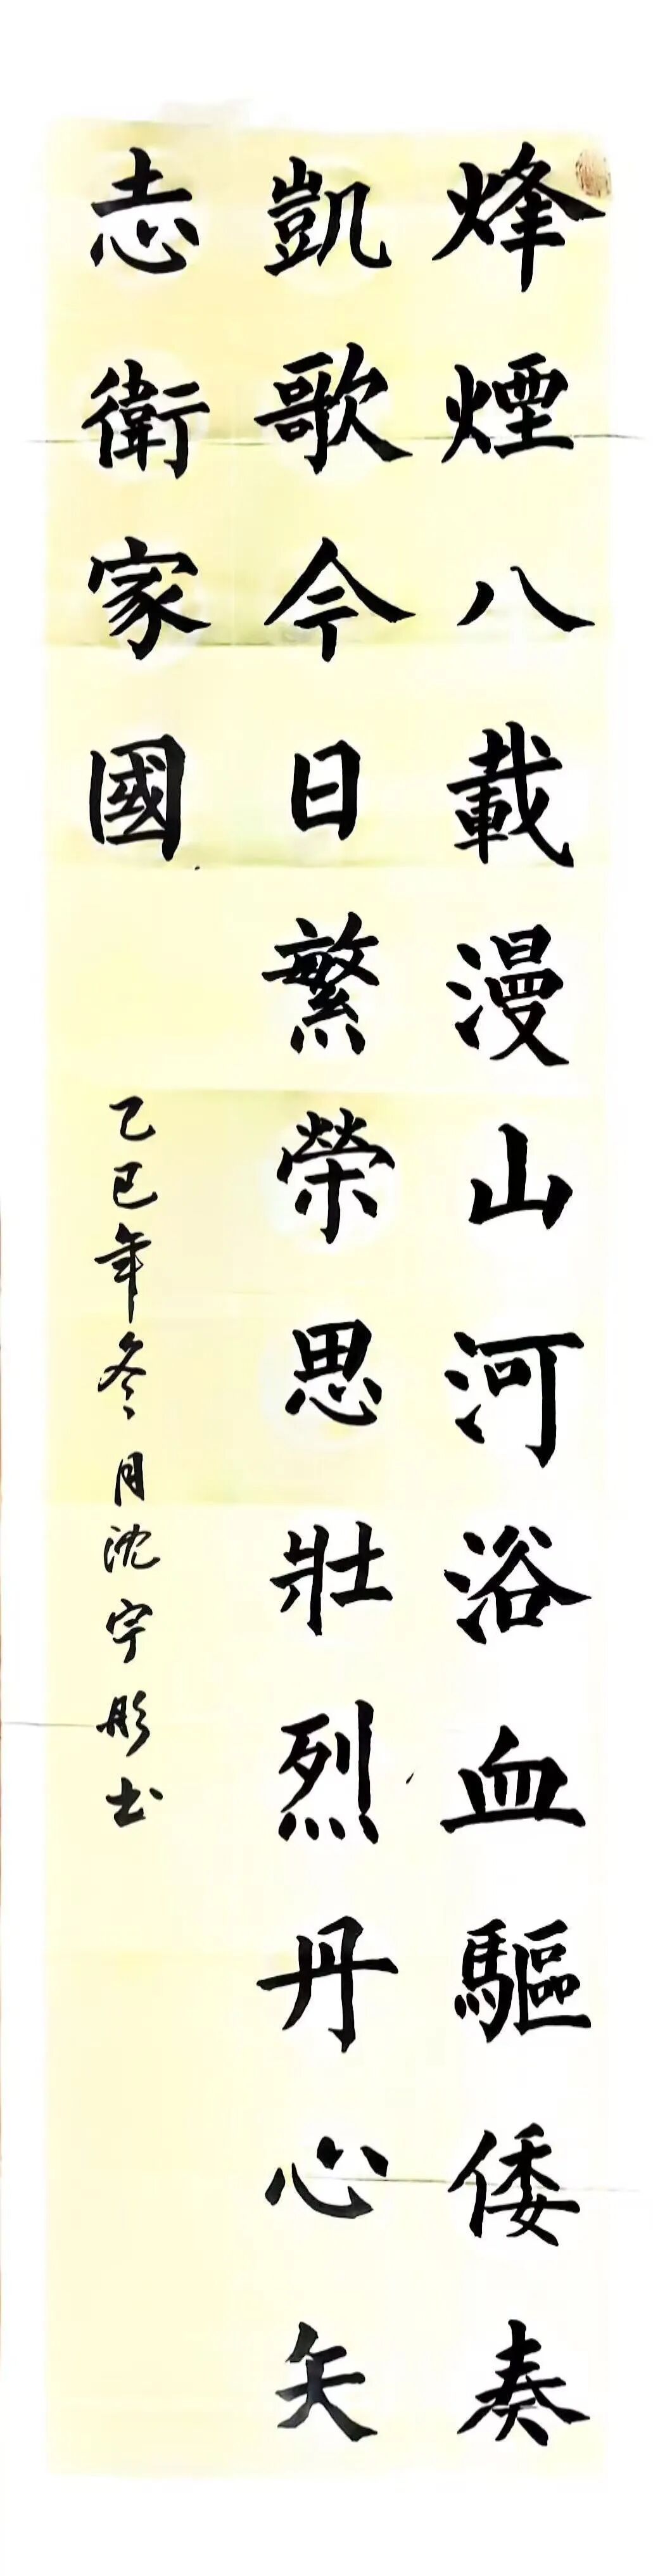 烽煙八載漫山河浴血驅倭奏
凱歌今日繁榮思壯烈丹心矢
志衛家國
乙巳年冬月沈宇彤书